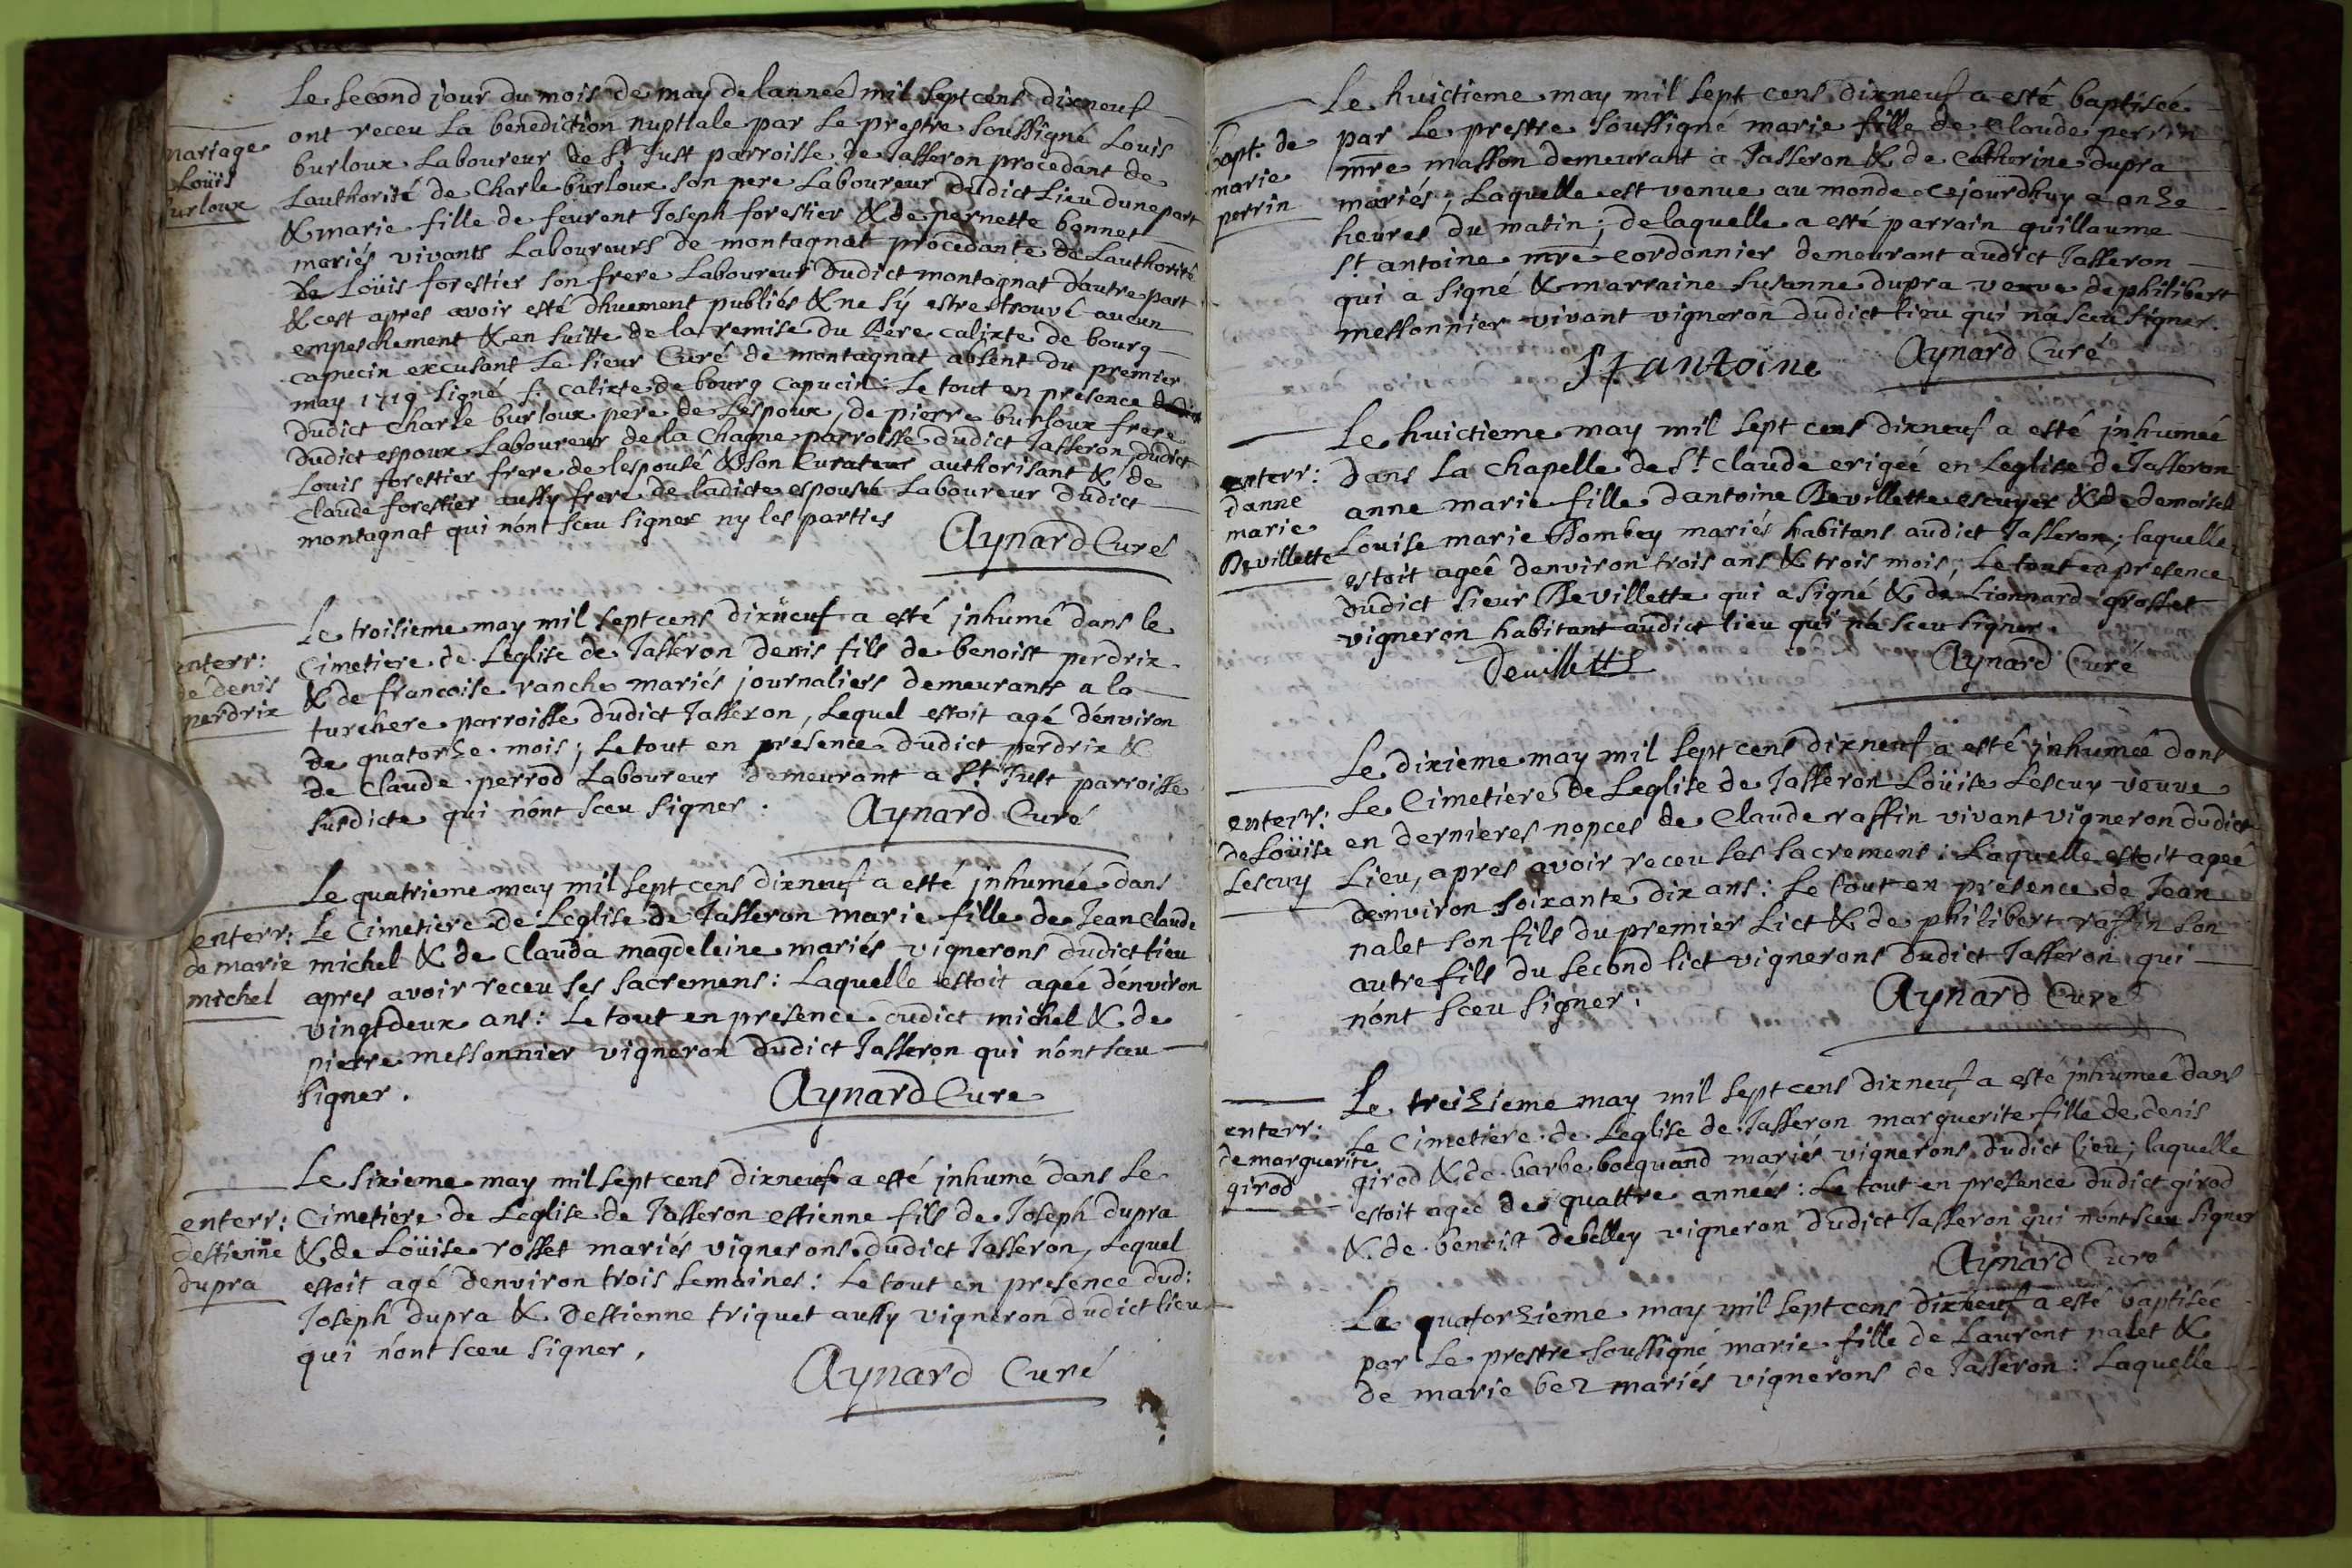 Le second jour du mois de may de lanneé mil sept cens dixneuf
mariage
Loüis
burloux
ont receu La benediction nuptiale par Le prestre soussigné Louis
burloux Laboureur de St Just parroisse de Jasseron procedant de
Lauthorité de Charle burloux son pere Laboureur dudict Lieu dunepart
& marie fille de feurent Joseph forestier & de pernette bonnet
mariés vivants Laboureurs de montagnat procedante de Lauthorité
de Loüis forestier son frere Laboureur dudict montagnat d'autre part
& cest apres avoir esté dhuement publiés & ne sÿ estre trouvé aucun
empeschement & en suitte de la remise du Pere calixte de bourg
capucin excusant Le sieur Curé de montagnat absent du premier
may 1719 signé f. calixte de bourg capucin: Le tout en presence
dudict Charle burloux pere de Lespoux, de pierre burloux frere
dudict espoux Laboureur de la Chagne parroisse dudict Jasseron, dudict
Louis forestier frere de lespousé & son Curateur authorisant & de
Claude forestier aussy frere de ladicte espouseé Laboureur dudict
montagnat qui nónt sceu signer ny les parties
Aynard Curé
Le troisieme may mil sept cens dixneuf a esté inhumé dans le
enterr:
de denis
perdrix
Cimetiere de Leglise de Jasseron denis fils de benoist perdrix
& de francoise ranche mariés journaliers demeurants a la
turchere parroisse dudict Jasseron, Lequel estoit agé d'environ
de quatorze mois; Le tout en présence dudict perdrix &
de Claude perrod Laboureur demeurant a St Just parroisse
susdicte qui nónt sceu signer:
Aynard Curé
Le quatrieme may mil sept cens dixneuf a esté inhumée dans
enterr:
de marie
michel
Le Cimetiere de Leglise de Jasseron marie fille de Jean Claude
michel & de Clauda magdeleine mariés vignerons dudict lieu
apres avoir receu ses sacremens: Laquelle estoit ageé d'environ
vingt deux ans: Le tout en presence dudict michel & de
pierre messonnier vigneron dudict Jasseron qui nónt sceu
signer.
Aynard Curé
Le sixieme may mil sept cens dixneuf a esté inhumé dans Le
enterr:
d'estienne
dupra
Cimetiere de Leglise de Jasseron estienne fils de Joseph dupra
& de Loüise rosset mariés vignerons dudict Jasseron, Lequel
estoit agé denviron trois semaines: Le tout en présence dud:
Joseph dupra & Destienne triquet aussy vigneron dudict lieu
qui nónt sceu signer,
Aynard Curé
Le huictieme may mil sept cens dixneuf a esté baptiseé
bapt: de
marie
perrin
par Le prestre soussigné marie fille de Claude perrin
mre masson demeurant a Jasseron & de Catherine dupra
mariés; Laquelle est venue au monde cejourdhuy a onze
heures du matin; de laquelle a esté parrain guillaume
St antoine mre cordonnier demeurant audict Jasseron
qui a signé & marraine susanne dupra veuve de philibert
messonnier vivant vigneron dudict lieu qui ná sceu signer.
St antoine
Aynard Curé
Le huictieme may mil sept cens dixneuf a esté inhumeé
enterr:
danne
marie
Devillette
dans La chapelle de St Claude erigeé en Leglise de Jasseron
anne marie fille dantoine Devillette escuyer & de demoiselle
Louise marie Dombey mariés habitans audict Jasseron; laquelle
estoit ageé denviron trois ans & trois mois; Le tout en presence
dudict sieur Devillette qui a signé & de Lionnard grosset
vigneron habitant audict lieu qui ná sceu signer.
Devillette
Aynard Curé
Le dixieme may mil sept cens dixneuf a esté inhumeé dans
enterr:
de Loüise
Lescuy
Le Cimetiere de Leglise de Jasseron Loüise Lescuy veuve
en dernieres nopces de Claude raffin vivant vigneron dudict
Lieu, apres avoir receu ses sacremens: Laquelle estoit ageé
denviron soixante dix ans: Le tout en presence de Jean
nalet son fils du premier Lict & de philibert raffin son
autre fils du second lict vignerons dudict Jasseron qui
nónt sceu signer:
Aynard Curé
Le treizieme may mil sept cens dixneuf a esté inhumeé dans
enterr:
de marguerite
girod
Le Cimetiere de Leglise de Jasseron marguerite fille de denis
girod & de barbe bocquand mariés vignerons dudict lieu; laquelle
estoit ageé de quattre annees: Le tout en presence dudict girod
& de benoist debelley vigneron dudict Jasseron qui nónt sceu signer
Aynard Curé
Le quatorzieme may mil sept cens dixneuf a esté baptiseé
par Le prestre soussigné marie fille de Laurent nalet &
de marie bez mariés vignerons de Jasseron: Laquelle